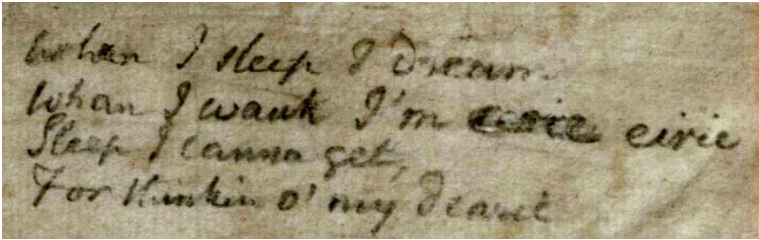 Whan I sleep I dream
Whan I wauk I'm eirie
Sleep I canna get,
For thinkin o' my Dearie